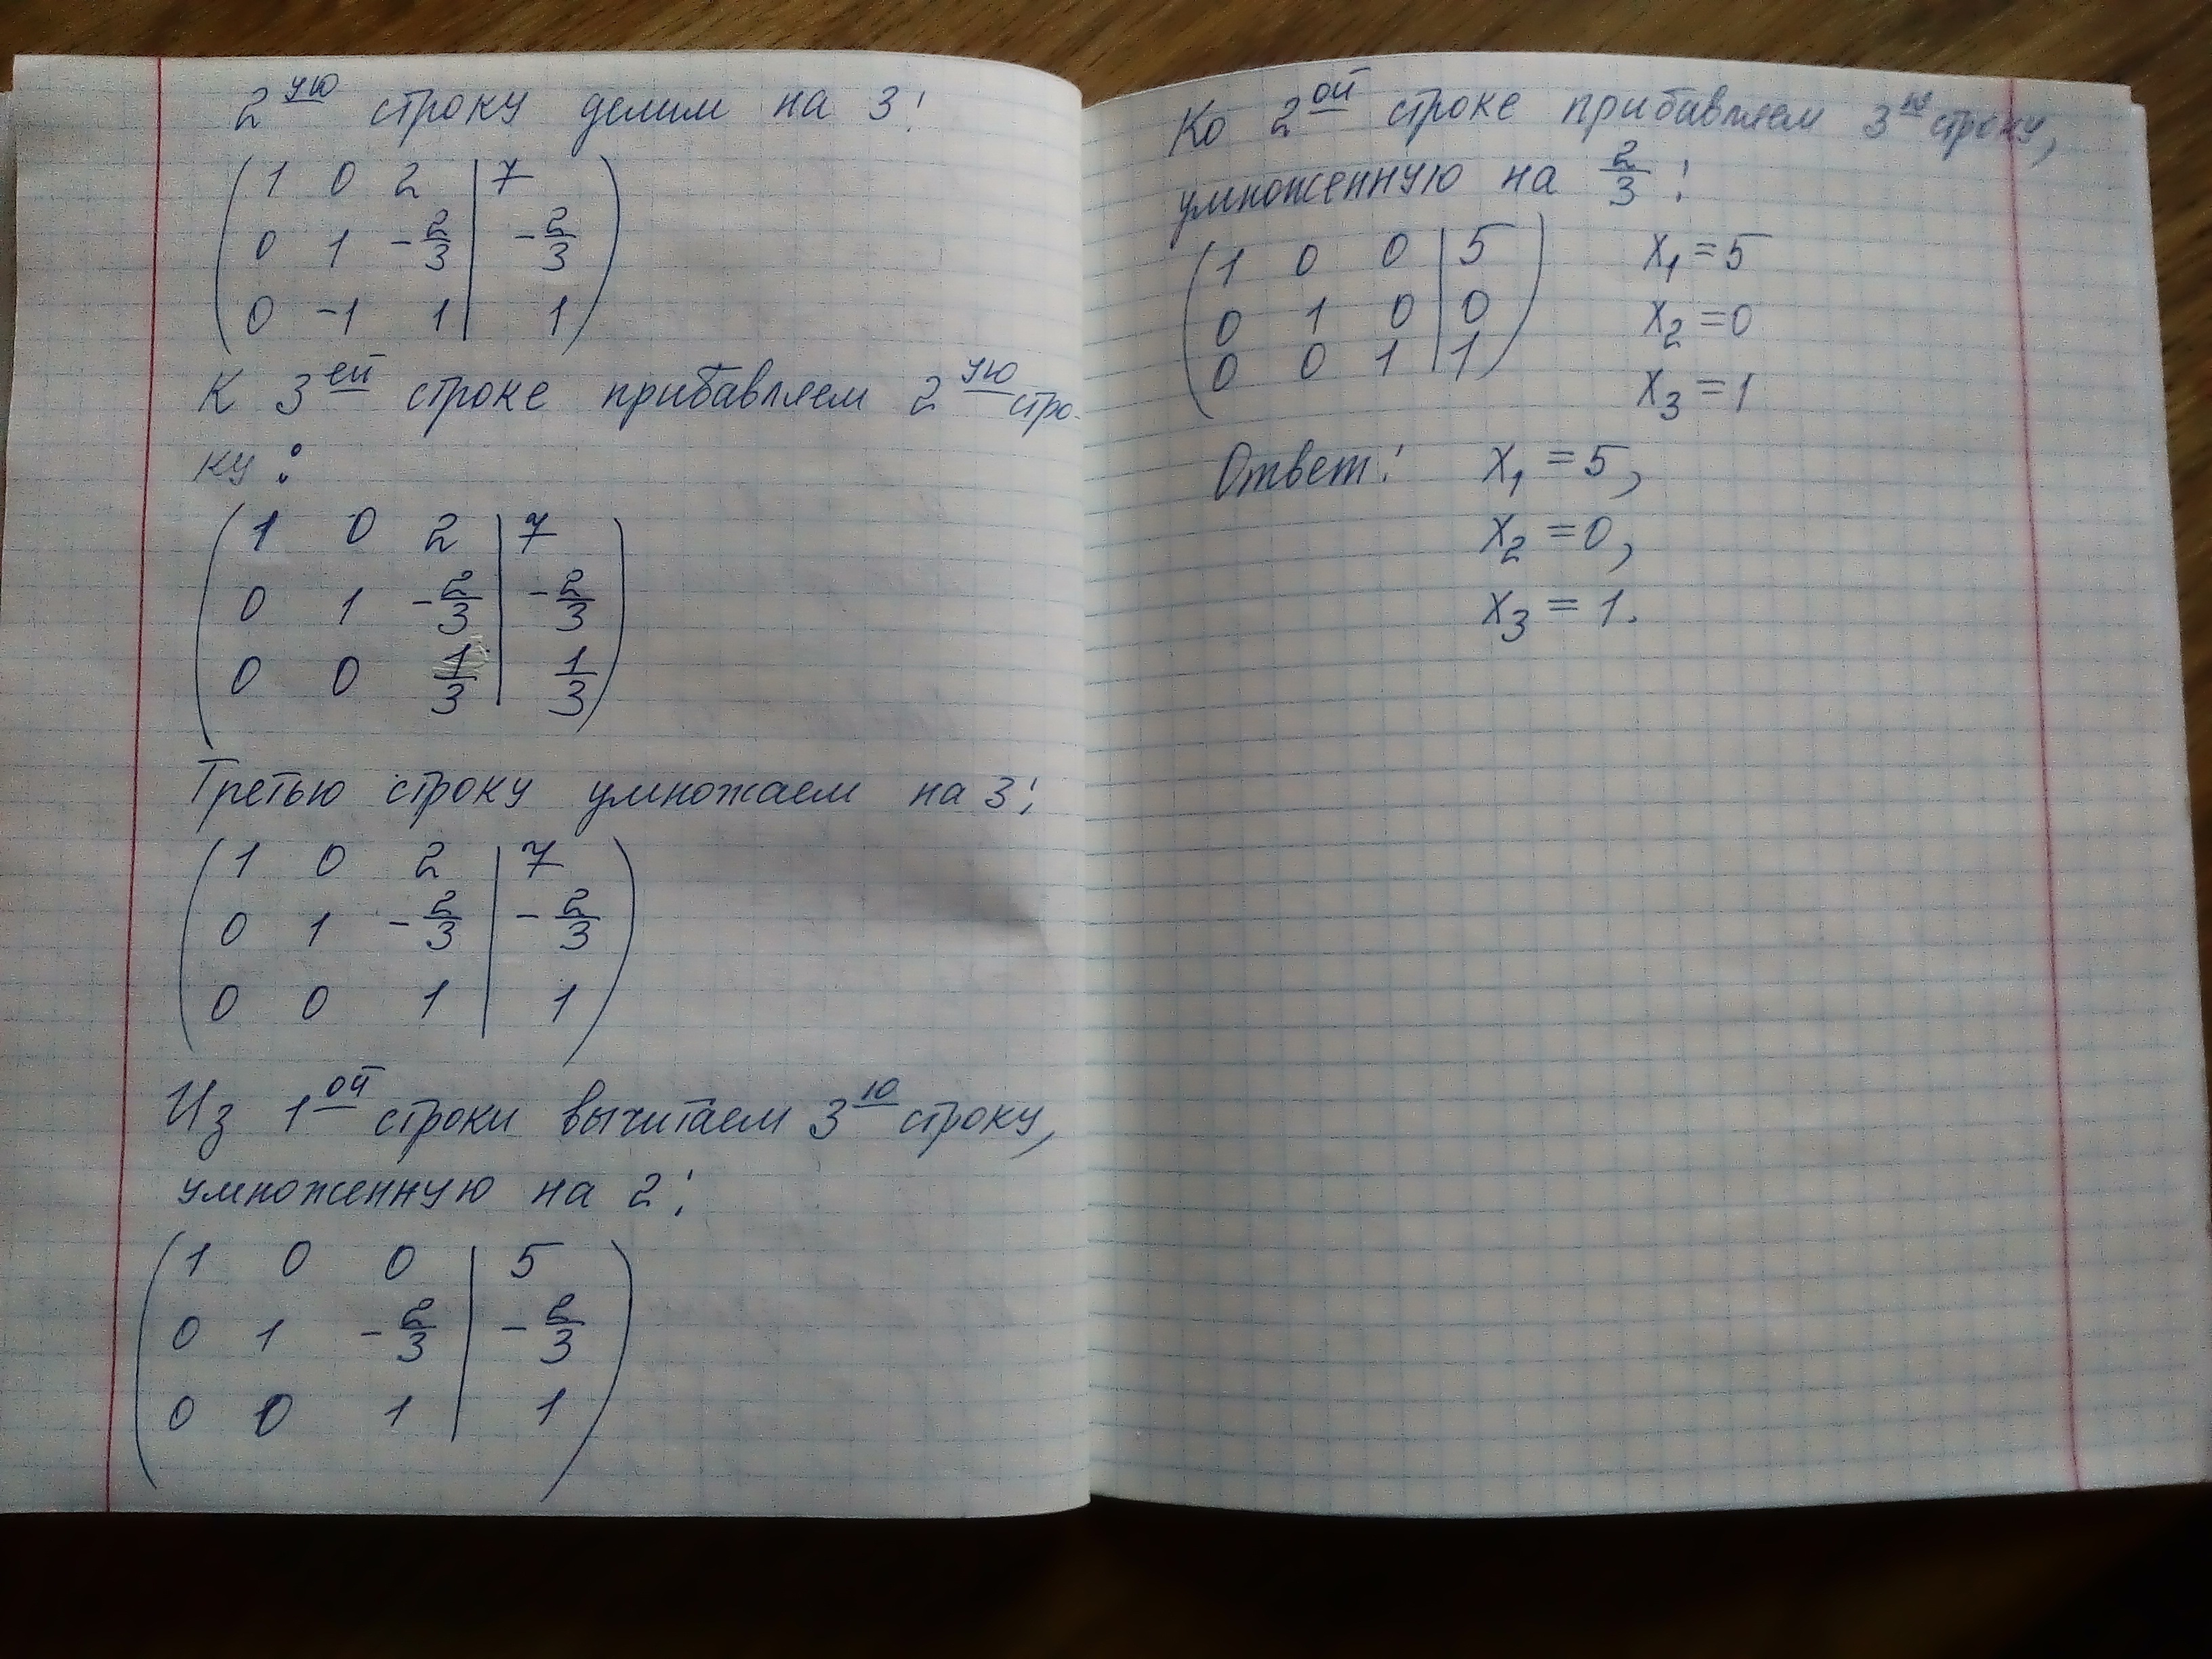 2ую строку делим на 3:
( 1 0 2 | 7 )
( 0 1 -2/3 | -2/3 )
( 0 -1 1 | 1 )
К 3ей строке прибавляем 2ую стро-
ку:
( 1 0 2 | 7 )
( 0 1 -2/3 | -2/3 )
( 0 0 1/3 | 1/3 )
Третью строку умножаем на 3:
( 1 0 2 | 7 )
( 0 1 -2/3 | -2/3 )
( 0 0 1 | 1 )
Из 1ой строки вычитаем 3ю строку,
умноженную на 2:
( 1 0 0 | 5 )
( 0 1 -2/3 | -2/3 )
( 0 0 1 | 1 )
Ко 2ой строке прибавляем 3ю строку,
умноженную на 2/3:
( 1 0 0 | 5 ) x₁ = 5
( 0 1 0 | 0 ) x₂ = 0
( 0 0 1 | 1 ) x₃ = 1
Ответ: x₁ = 5,
x₂ = 0,
x₃ = 1.